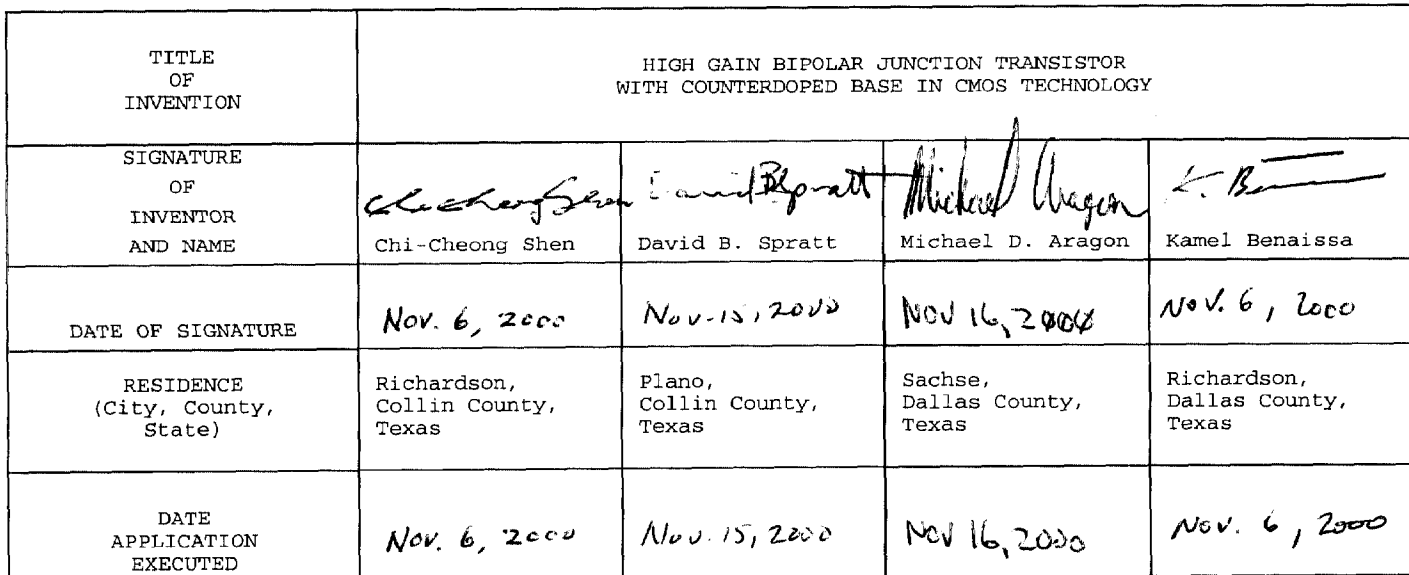 TITLE
OF
INVENTION
HIGH GAIN BIPOLAR JUNCTION TRANSISTOR
WITH COUNTERDOPED BASE IN CMOS TECHNOLOGY
SIGNATURE
OF
INVENTOR
AND NAME
Chi-Cheong Shen
David B Spratt
Michael D Aragon
K. Ben
Chi-Cheong Shen
David B. Spratt
Michael D. Aragon
Kamel Benaissa
DATE OF SIGNATURE
Nov. 6, 2000
Nov. 15, 2000
NOV 16, 2000
Nov. 6, 2000
RESIDENCE
(City, County,
State)
Richardson,
Collin County,
Texas
Plano,
Collin County,
Texas
Sachse,
Dallas County,
Texas
Richardson,
Dallas County,
Texas
DATE
APPLICATION
EXECUTED
Nov. 6, 2000
Nov. 15, 2000
NOV 16, 2000
Nov. 6, 2000